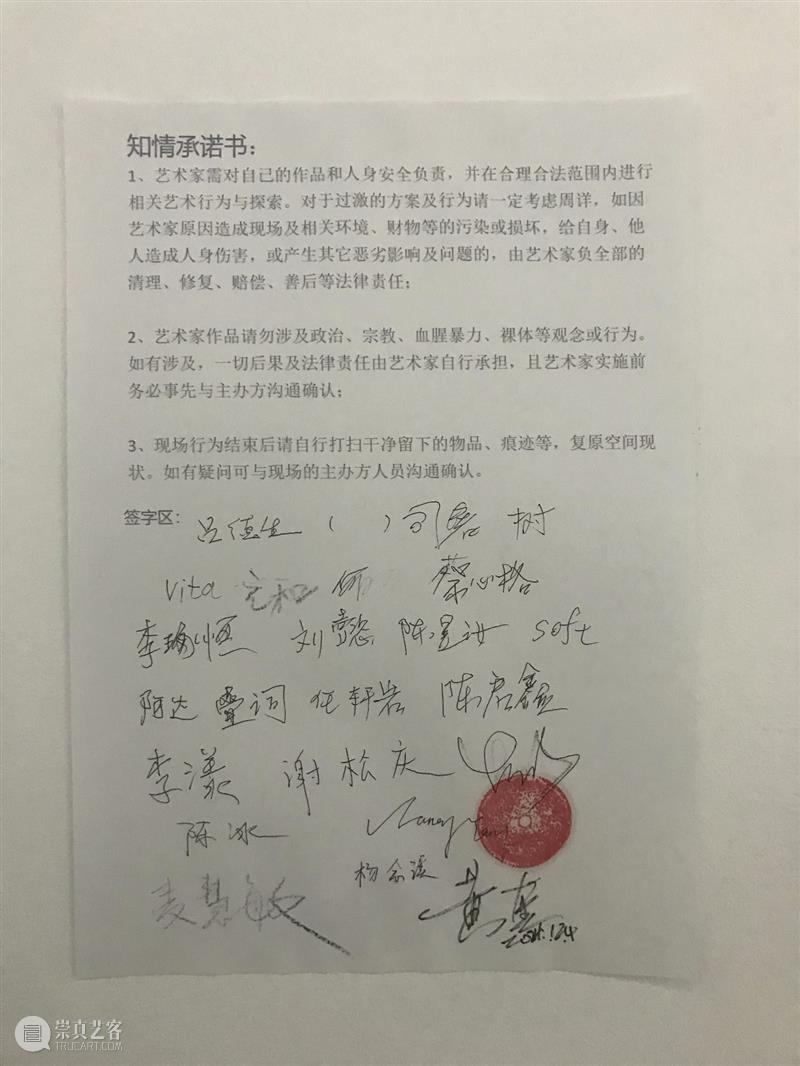 知情承诺书：
1、艺术家需对自己的作品和人身安全负责，并在合理合法范围内进行
相关艺术行为与探索。对于过激的方案及行为请一定考虑周详，如因
艺术家原因造成现场及相关环境、财物等的污染或损坏，给自身、他
人造成人身伤害，或产生其它恶劣影响及问题的，由艺术家负全部的
清理、修复、赔偿、善后等法律责任；
2、艺术家作品请勿涉及政治、宗教、血腥暴力、裸体等观念或行为。
如有涉及，一切后果及法律责任由艺术家自行承担，且艺术家实施前
务必事先与主办方沟通确认；
3、现场行为结束后请自行打扫干净留下的物品、痕迹等，复原空间现
状。如有疑问可与现场的主办方人员沟通确认。
签字区： 吕德生 （ ） 树
Vita 何 蔡心格
李瑜恒 刘懿 陈昱汝 Soft
阿达 童词 任轩岩 陈君鑫
李漾 谢松庆
陈冰
杨
麦慧敏 黄
崇真艺客
TRUEART.COM